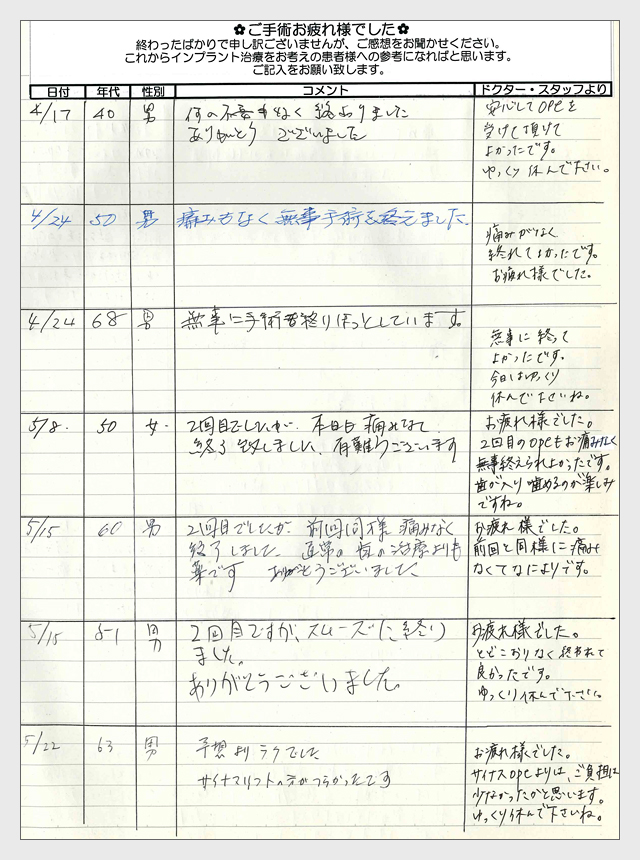 ✿ご手術お疲れ様でした✿
終わったばかりで申し訳ございませんが、ご感想をお聞かせください。
これからインプラント治療をお考えの患者様への参考になればと思います。
ご記入をお願い致します。
日付 年代 性別 コメント ドクター・スタッフより
4/17 40 男 何の不安もなく終わりました
ありがとうございました
安心してOPEを
受けて頂けて
よかったです。
ゆっくり休んで下さい。
4/24 50 男 痛みもなく無事手術を終えました。
痛みがなく
終れてよかったです。
お疲れ様でした。
4/24 68 男 無事に手術を終りほっとしています。
無事に終って
よかったです。
今日はゆっくり
休んで下さいね。
5/8. 50 女 2回目でしたが、本日も痛みなく
終了致しました、有難うございます
お疲れ様でした。
2回目のOPEもお痛みなく
無事終えられよかったです。
歯が入り噛めるのが楽しみ
ですね。
5/15 60 男 2回目でしたが 前回同様 痛みなく
終了しました 通常の歯の治療よりも
楽です ありがとうございました
お疲れ様でした。
前回と同様に痛み
なくてなによりです。
5/15 51 男 2回目ですが、スムーズに終り
ました。
ありがとうございました。
お疲れ様でした。
とどこおりなく終われて
良かったです。
ゆっくり休んで下さい。
5/22 63 男 予想よりラクでした
サイナスリフトの方がつらかったです
お疲れ様でした。
サイナスOPEよりは、ご負担は
少なかったかと思います。
ゆっくり休んで下さいね。